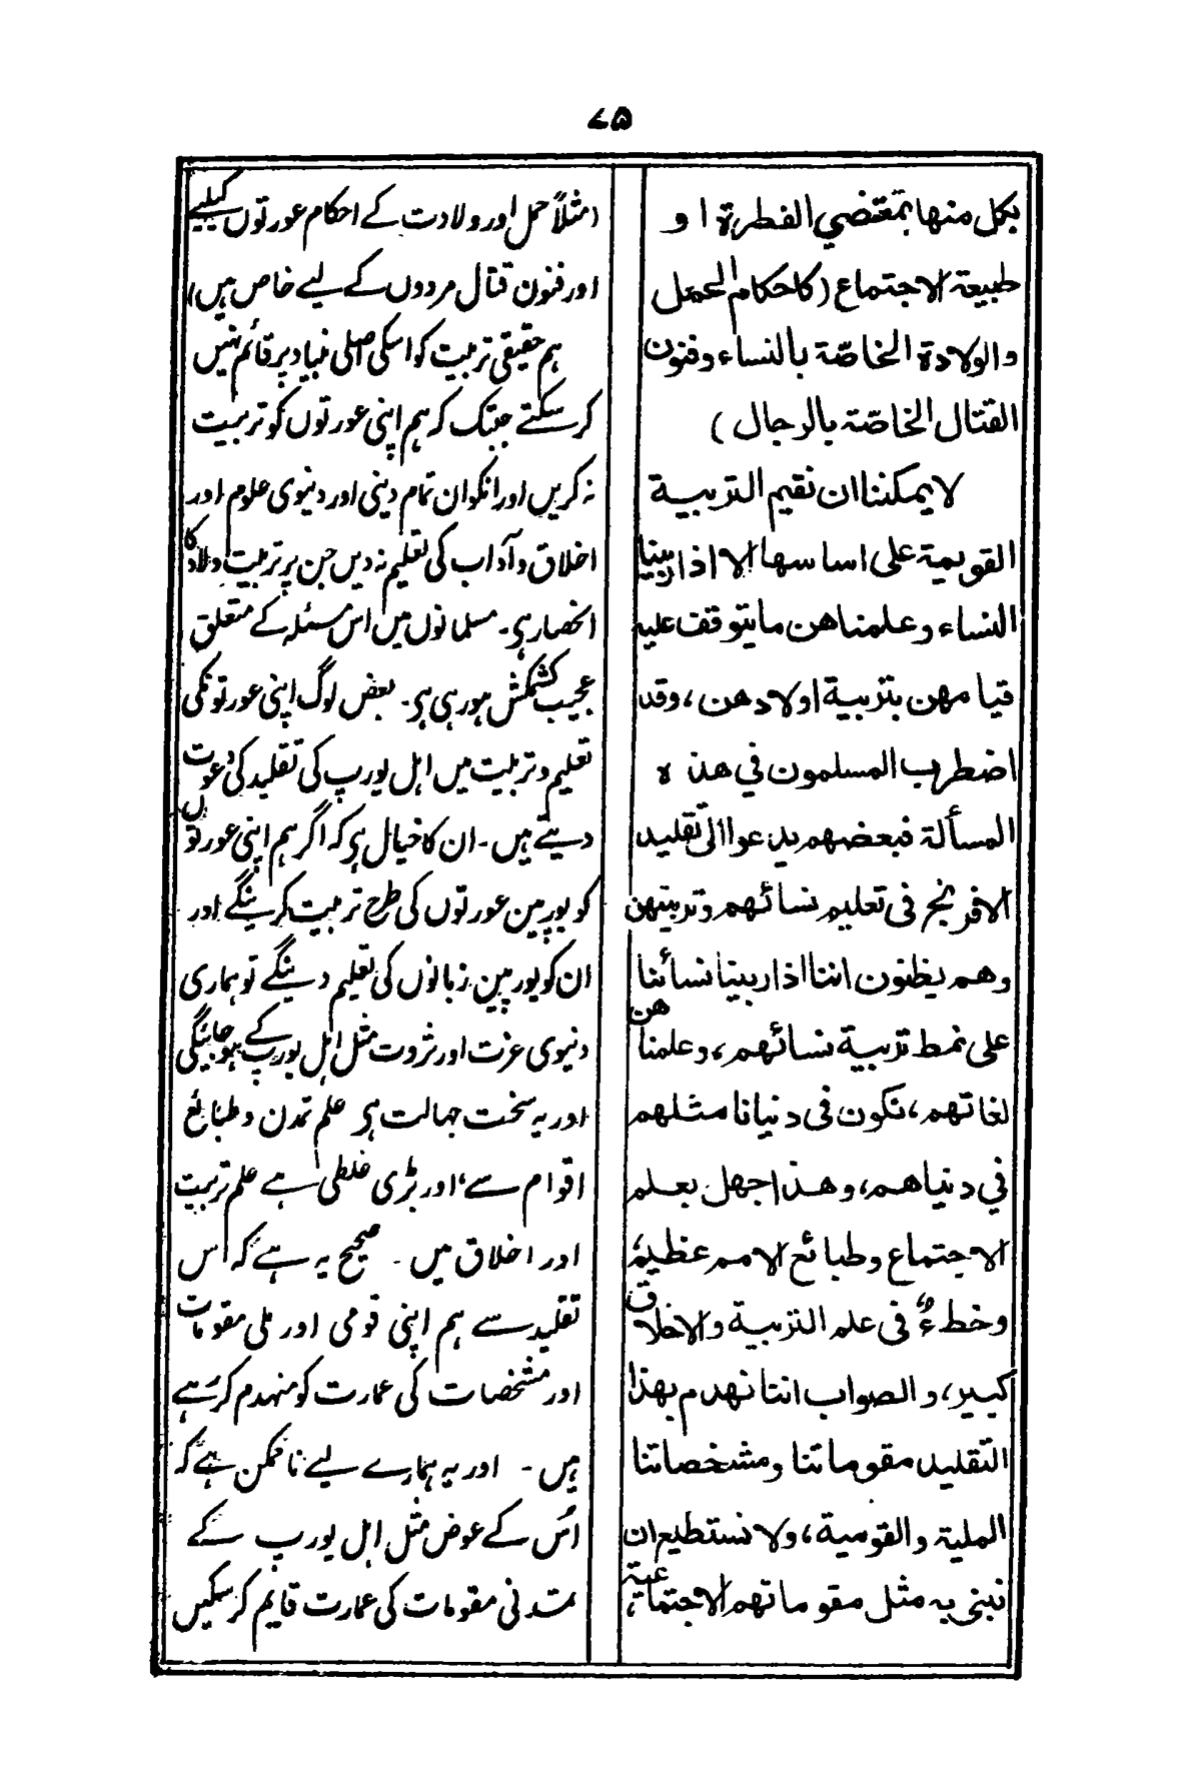 ۷۵
بكل منها بمقتضي الفطرة او
طبيعة الاجتماع (كاحكام الحمل
والولادة الخاصّة بالنساء وفنون
القتال الخاصّة بالرجال)
لا يمكننا ان نقيم التربية
القويمة على اساسها الا اذا ربينا
النساء وعلمناهن ما يتوقف عليه
قيامهن بتربية اولادهن، وقد
اضطرب المسلمون في هذه
المسألة فبعضهم يدعوا الى تقليد
الافرنج فى تعليم نسائهم وتربيتهن
وهم يظنون اننا اذا ربينا نسائنا
على نمط تربية نسائهم، وعلمناهن
لغاتهم، نكون فى دنيانا مثلهم
في دنياهم، وهذا جهل بعلم
الاجتماع وطبائع الامم عظيم،
وخطءٌ فى علم التربية والاخلاق
كبير، والصواب اننا نهدم بهذا
التقليد مقوماتنا ومشخصاتنا
الملية والقومية، ولا نستطيع ان
نبني به مثل مقوماتهم الاجتماعية،
(مثلاً حمل اور ولادت کے احکام عورتوں کیلیے
اور فنون قتال مردوں کے لیے خاص ہیں)
ہم حقیقی تربیت کو اسکی اصلی بنیاد پر قائم نہیں
کر سکتے جبتک کہ ہم اپنی عورتوں کو تربیت
نہ کریں اور انکو ان تمام دینی اور دنیوی علوم اور
اخلاق و آداب کی تعلیم نہ دیں جن پر تربیت اولاد کا
انحصار ہی۔ مسلمانوں میں اس مسئلہ کے متعلق
عجیب کشمکش ہو رہی ہی۔ بعض لوگ اپنی عورتونکی
تعلیم و تربیت میں اہل یورپ کی تقلید کی دعوت
دیتے ہیں۔ ان کا خیال ہی کہ اگر ہم اپنی عورتوں
کو یورپین عورتوں کی طرح تربیت کرینگے اور
ان کو یورپین زبانوں کی تعلیم دینگے تو ہماری
دنیوی عزت اور ثروت مثل اہل یورپ کے ہوجائیگی
اور یہ سخت جہالت ہی علم تمدن و طبائع
اقوام سے، اور بڑی غلطی ہے علم تربیت
اور اخلاق میں۔ صحیح یہ ہے کہ اس
تقلید سے ہم اپنی قومی اور ملی مقومات
اور مشخصات کی عمارت کو منہدم کر رہے
ہیں۔ اور یہ ہمارے لیے ناممکن ہے کہ
اُس کے عوض مثل اہل یورپ کے
تمدنی مقومات کی عمارت قایم کر سکیں